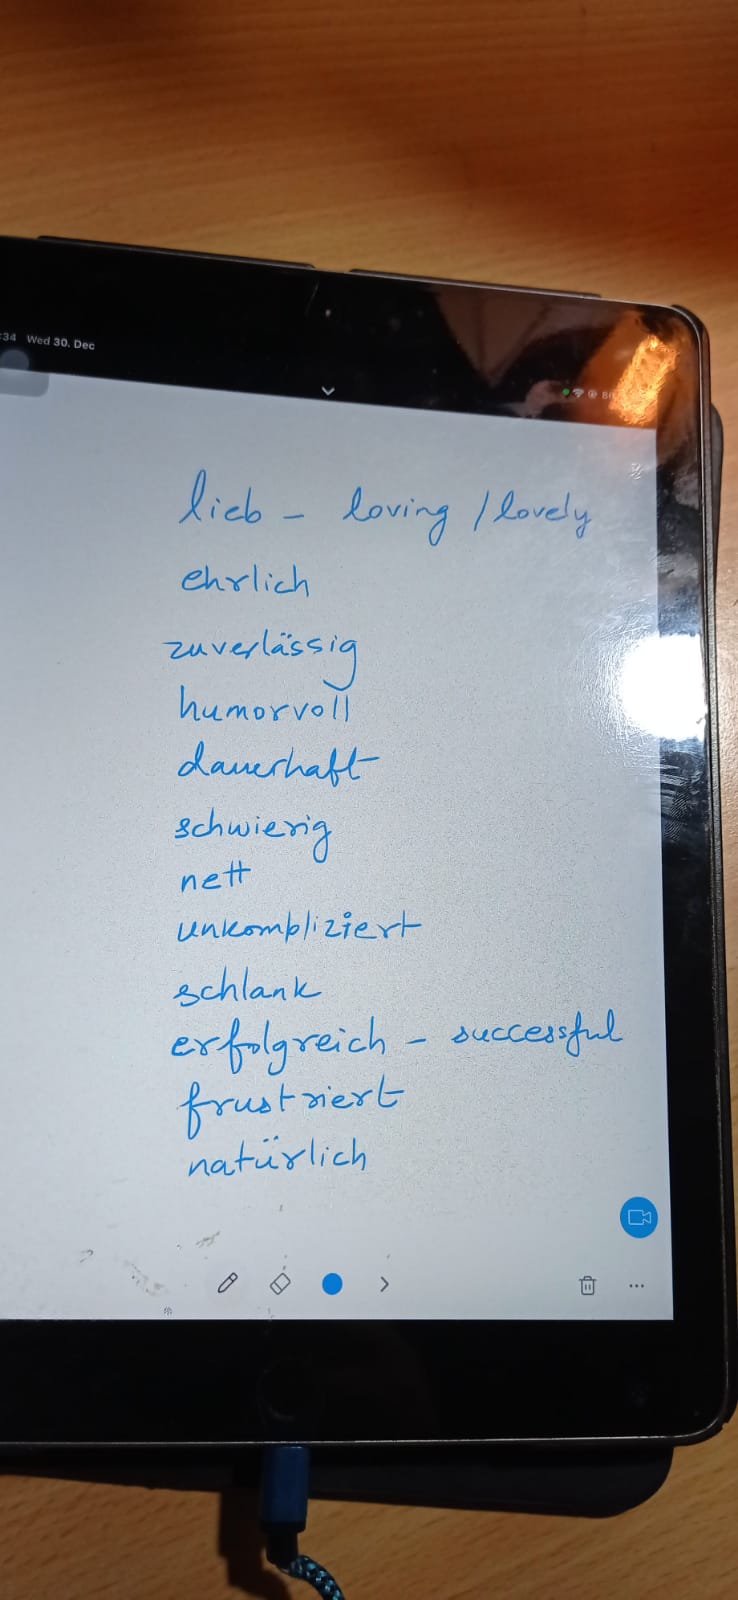 :34 Wed 30. Dec
lieb - loving / lovely
ehrlich
zuverlässig
humorvoll
dauerhaft
schwierig
nett
unkompliziert
schlank
erfolgreich - successful
frustriert
natürlich